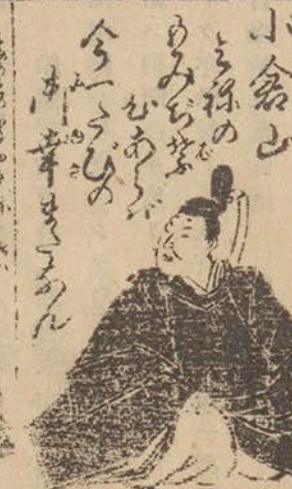 小倉山
みねの
もみぢ葉
心あらば
今一たびの
御幸またなん